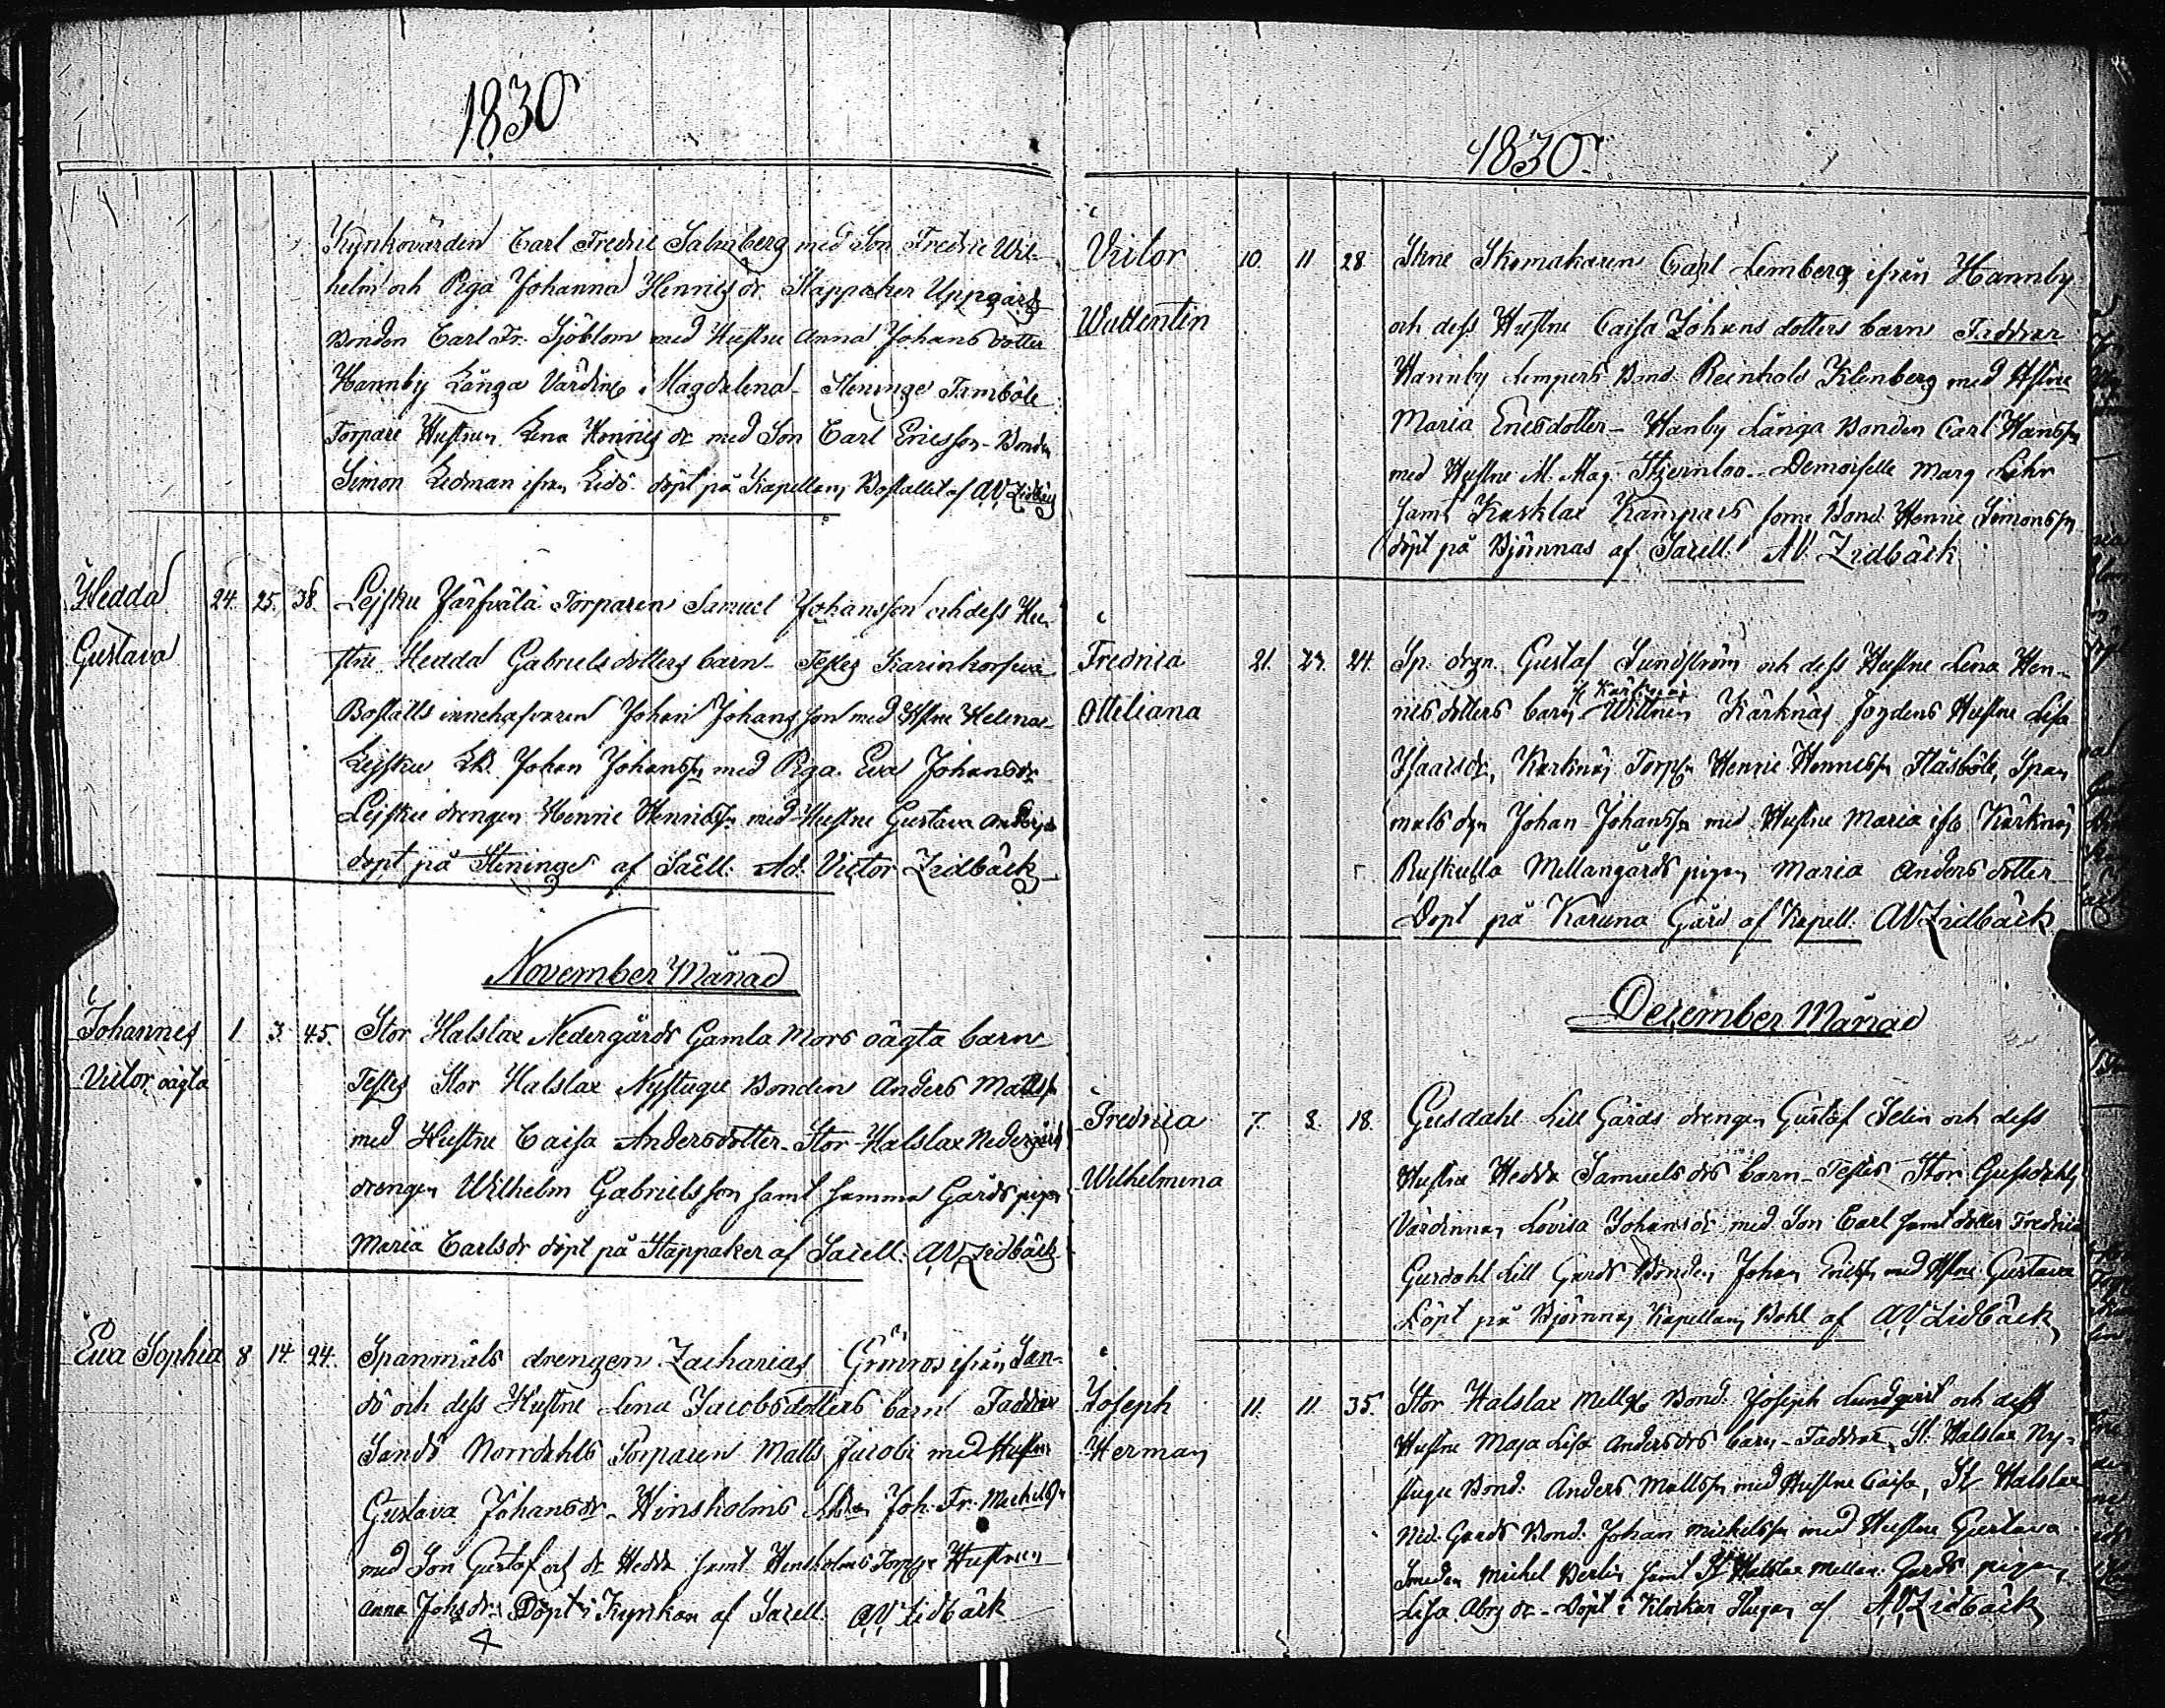 1830
Kyrkovärden Carl Fredric Salmberg med Son Fredric Wil-
helm och Piga Johanna Henricsdr. Stappaker Uppgårds
Bonden Carl Fr. Sjöblom med Hustru Anna Johans dotter
Hannby Långa Värdin Magdalena Steninge Tamböle
Torpare Hustrun Lena Henricsdr med Son Carl Ericsson Bonden
Simon Lidman ifrån Lidö döpt på Kapellans Bostället af A.V. Zidbäck
Hedda 24. 25. 38. Lejsku Torparen Samuel Johansson och dess Hu-
Gustava stru Hedda Gabriels dotters barn Testes Karinkorfwa
Boställs innehafvaren Johan Johansson med Hstru Helena
Lejsku Johan Johanss med Piga Eva Johansdr
Lejsku drengen Henric Henricss med Hustru Gustava Andersdr
döpt på Steninge af Sacell. Ad. Victor Zidbäck
November Månad
Johannes 1 3 45. Stor Halslax Nedergårds Gamla Mors oägta barn
Victor oägta Testes Stor Halslax Nystugu Bonden Anders Mattss
med Hustru Caisa Andersdotter Stor Halslax Nedergård
drengen Wilhelm Gabrielsson samt samma Gårds pigan
Maria Carlsdr döpt på Stappaker af Sacell. A.V. Zidbäck
Eva Sophia 8 14 24. Spanmåls drengen Zacharias Grönroos ifrån San-
dö och dess Hustru Lena Jacobsdotters barn Faddrar
Sandö Norrdahls Torparen Matts Jacobs med Hustru
Gustava Johansdr Hinsholms Joh. Fr. Michelss
med Son Gustaf och dr Hedda samt Hinsholms Hustrun
Anna Johsdr. Döpt i Kyrkan af Sacell. A.V. Zidbäck
1830
Victor 10. 11 28 Skomakaren Carl Lemberg ifrån Hannby
Wallentin och dess Hustru Caisa Johans dotters barn Faddrar
Hannby Lempers Bond. Reinhold Klenberg med Hstru
Maria Ericsdotter Hanby Långa Bonden Carl Hanss
med Hustru M. Mag. Stjernloo Demoiselle Marg Lihr
samt Karklax Kampars Bond Henric Simonss
döpt på Björnnäs af Sacell. A.V. Zidbäck
Fredrica 21. 23. 24. Sp. drgn. Gustaf Sundström och dess Hustru Lena Hen-
Ottiliana rics dotters barn Wittnen Kärknäs Hustru Lisa
Isaacsdr, Karknäs Torp Henric Henricss Fläsböle, Span
måls dgn Johan Johanss med Hustru Maria Kärknäs
Ruskulla Mellangårds pigan Maria Anders dotter
Döpt på Karuna Gård af Kapell. A.V. Zidbäck
December Månad
Fredrica 7. 8. 18. Gusdahl Lill Gårds drengen Gustaf Selin och dess
Wilhelmina Hustru Hedda Samuelsdrs barn Testes Stor Gussdahls
Värdinnan Lovisa Johansdr med Son Carl samt dotter Fredrica
Gusdahl Lill Gårds Bonden Johan Ericss med Hstru Gustava
Döpt på Björnnäs Kapellans Bohl af A.V. Zidbäck
Joseph 11. 11. 35. Stor Halslax Bond. Joseph Lundqvist och dess
Herman Hustru Maja Lisa Andersdrs barn Faddrar St. Halslax Ny-
stugu Bond. Anders Mattss med Hustru Caisa, St Halslax
Ned. Gårds Bond. Johan Michelss med Hustru Gustava
Smeden Michel Berlin samt St Halslax Mellan Gårds pigan
Lisa Abrsdr Döpt i Klockar Stugan af A.V. Zidbäck